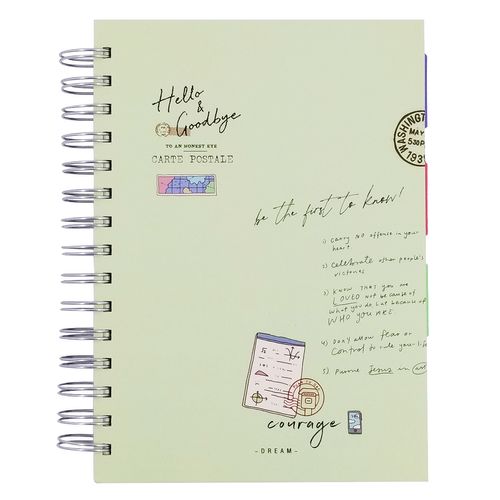 Hello
&
Goodbye
TO AN HONEST EYE
CARTE POSTALE
WASHINGT
MAY
530P
193
be the first to know!
1) Carry NO offense in your
heart
2) Celebrate other people's
victories
3) KNOW THAT you are
LOVED not because of
what you do but because of
WHO YOU ARE.
4) Don't allow fear or
control to rule your life
5) Pursue Jesus in
courage
-DREAM-